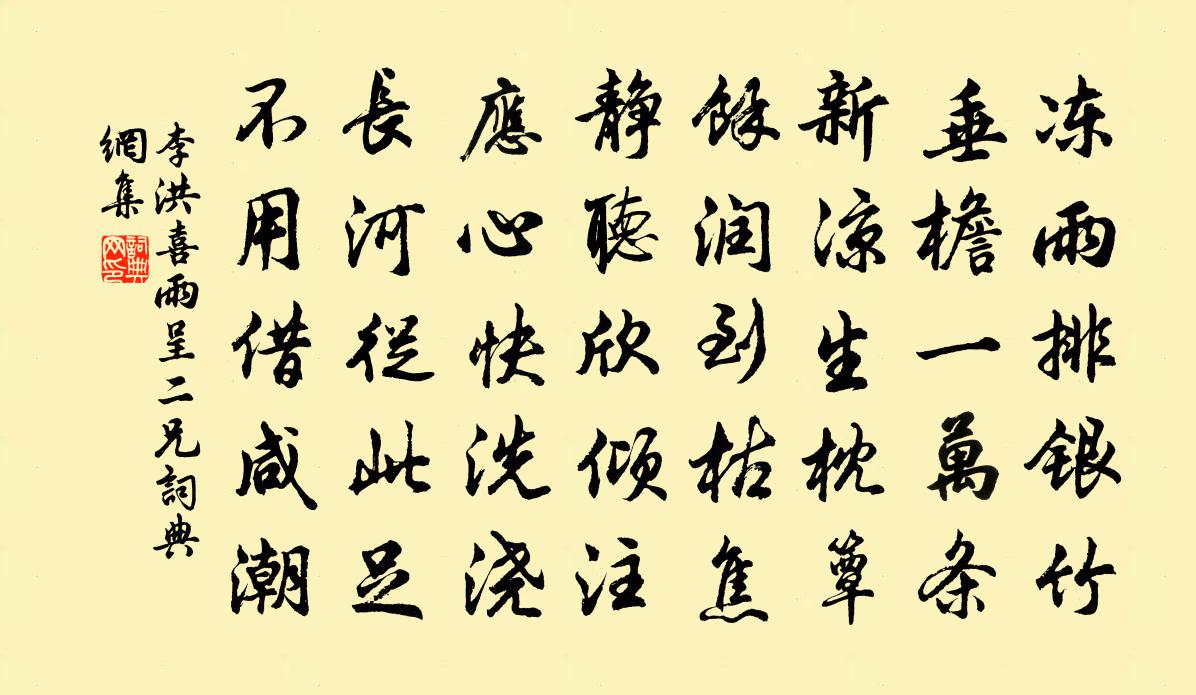 冻雨排银竹
垂檐一萬条
新凉生枕簟
馀润到枯焦
静聽欣倾注
應心快洗浇
長河從此足
不用借咸潮
李洪喜雨呈二兄詞典
網集
詞典
网印